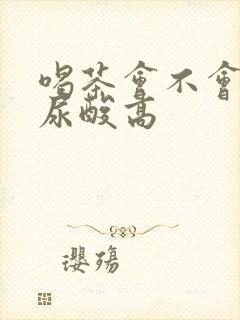 喝茶會不會
尿酸高
瓔殤